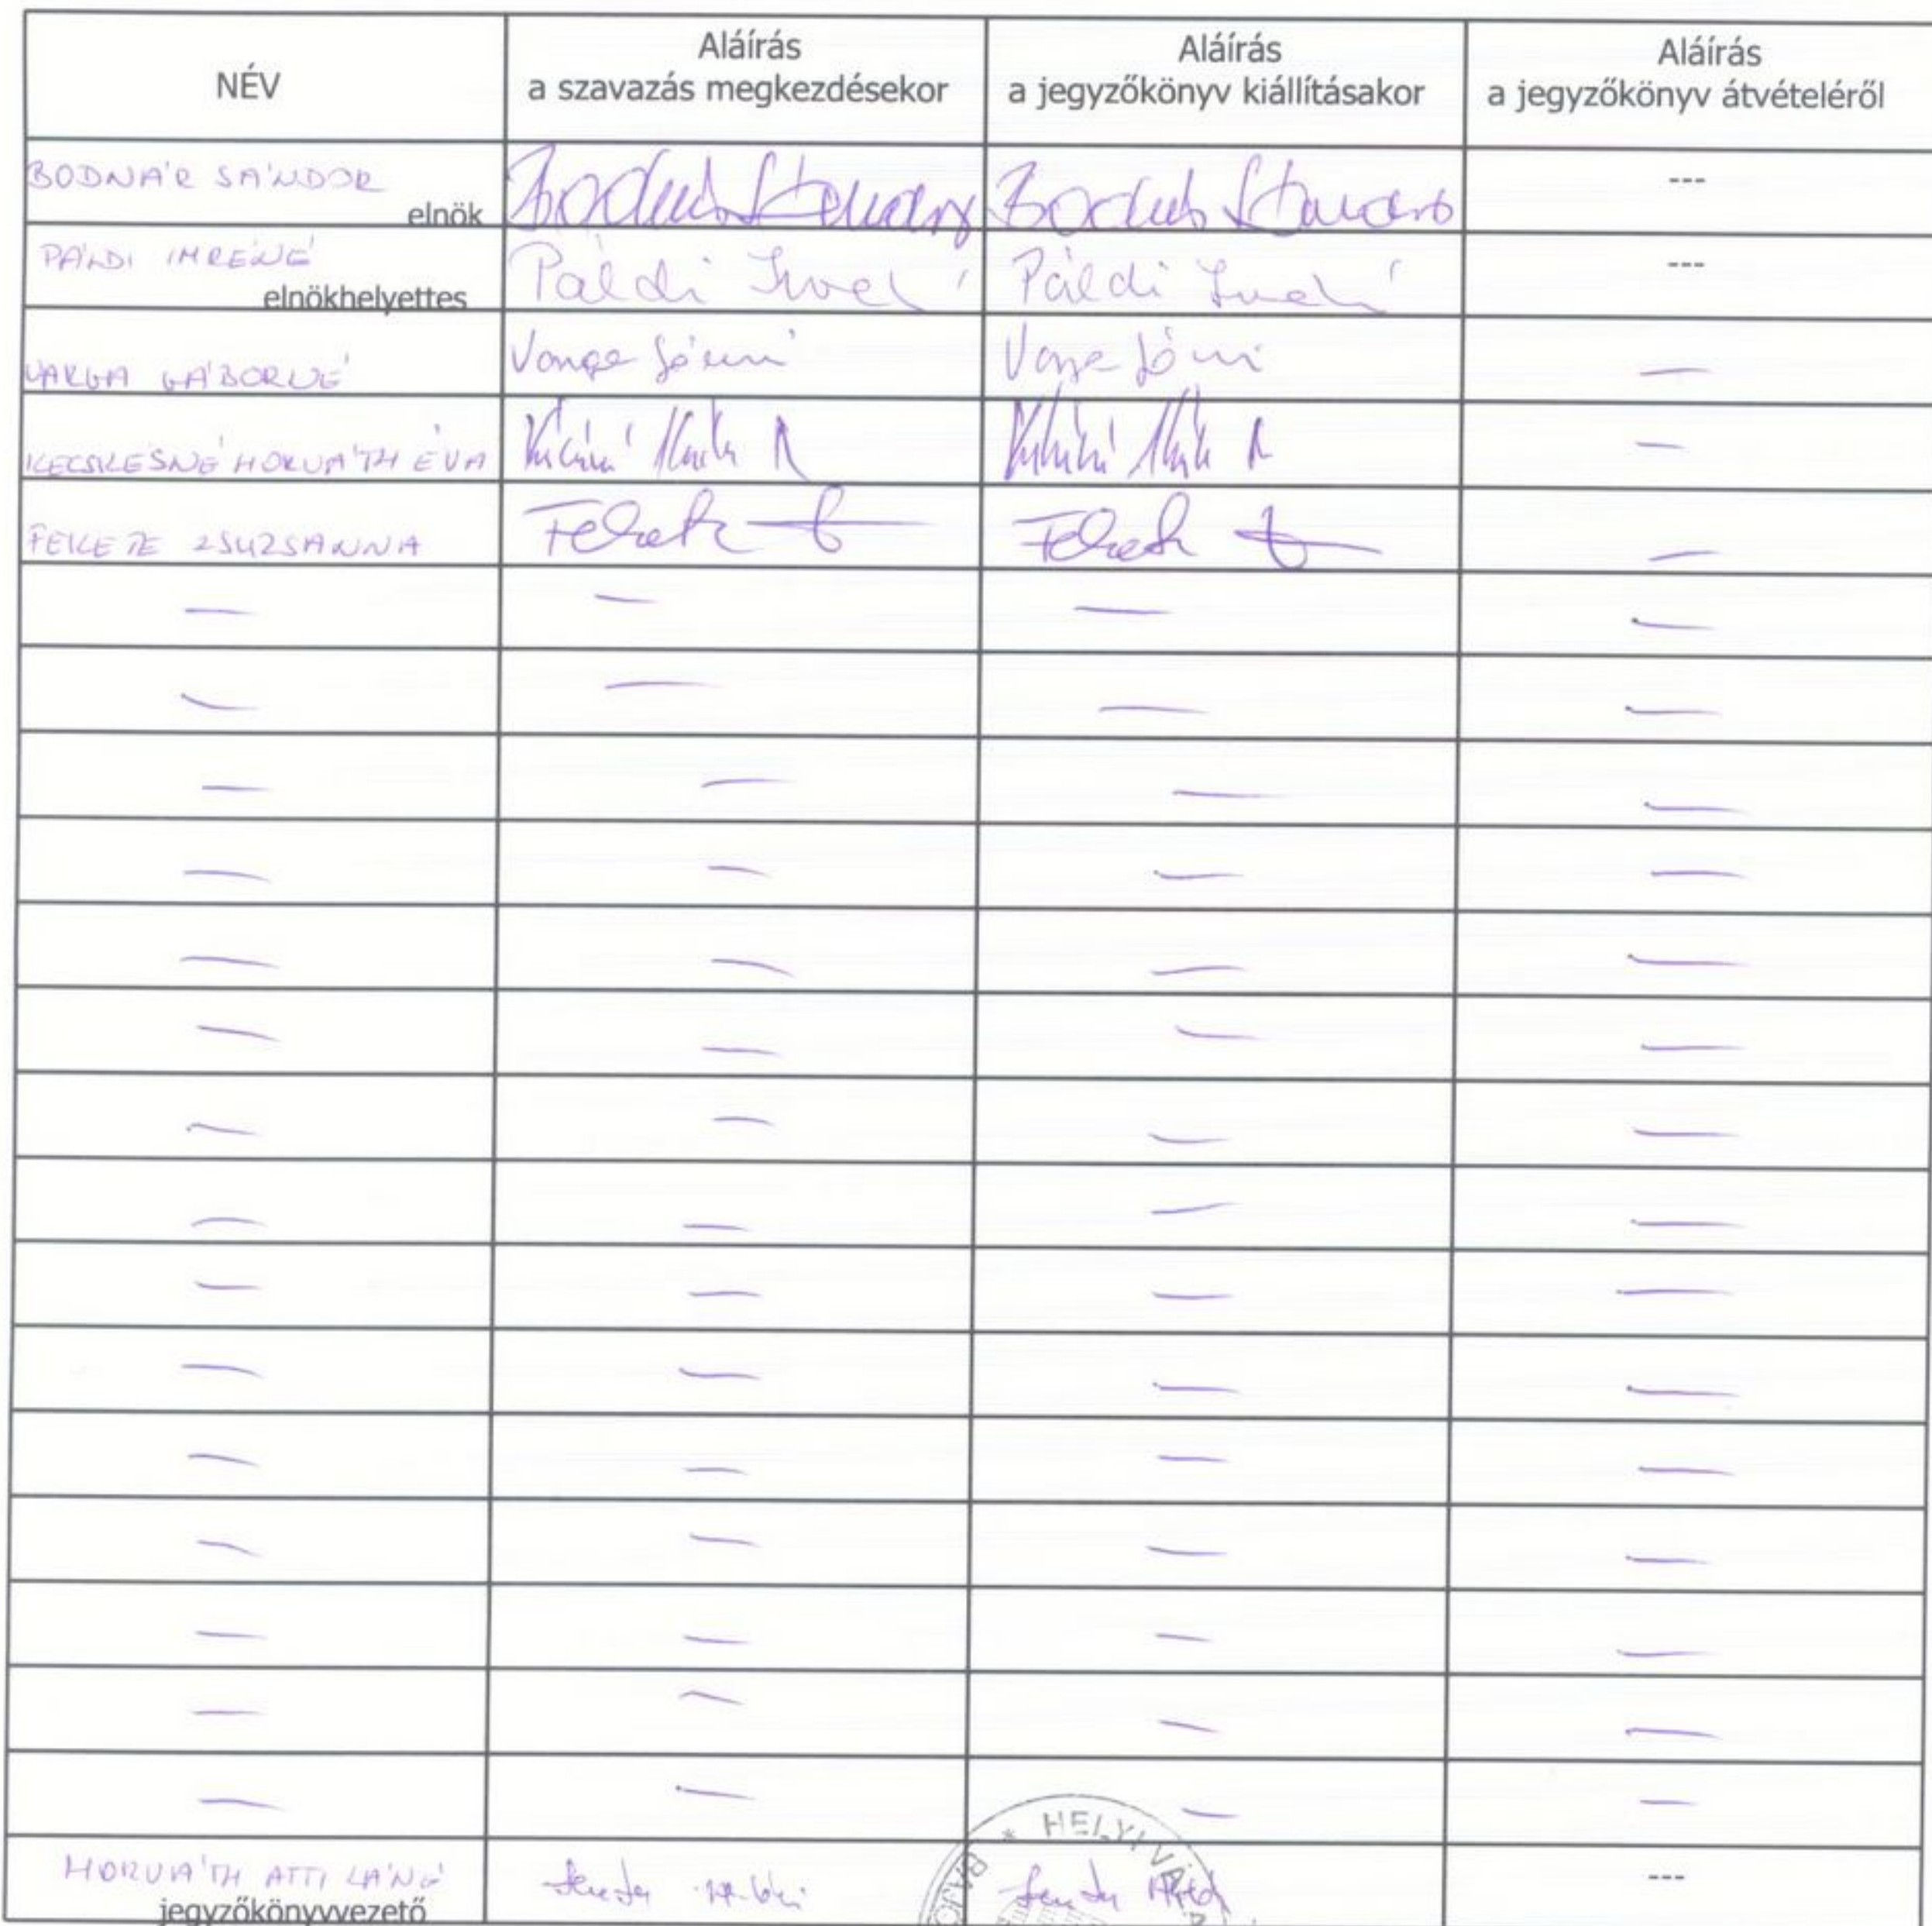 NÉV
Aláírás
a szavazás megkezdésekor
Aláírás
a jegyzőkönyv kiállításakor
Aláírás
a jegyzőkönyv átvételéről
BODNÁR SÁNDOR
elnök
---
PÁLDI IMRÉNÉ
elnökhelyettes
Páldi
Páldi
---
VARGA GÁBORNÉ
Varga
Varga
—
KECSKÉSNÉ HORVÁTH ÉVA
—
FEKETE ZSUZSANNA
Fekete
Fekete
—
— — — —
— — — —
— — — —
— — — —
— — — —
— — — —
— — — —
— — — —
— — — —
— — — —
— — — —
— — — —
— — — —
— — — —
— — — —
HORVÁTH ATTILÁNÉ
jegyzőkönyvvezető
---
* HELYI